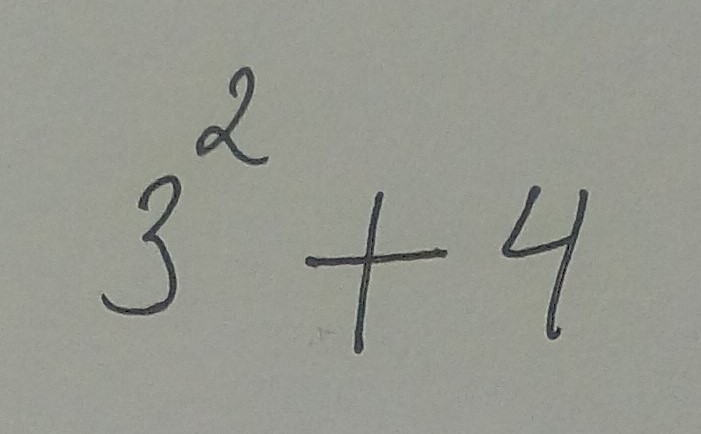 3² + 4